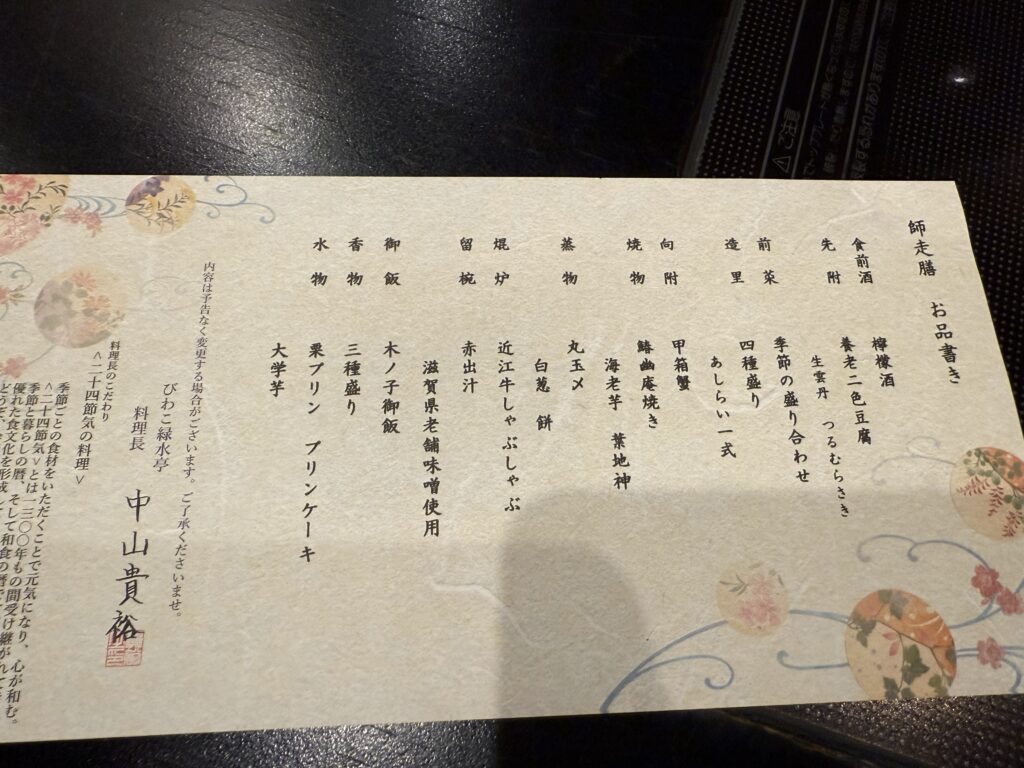 師走膳 お品書き
食前酒 檸檬酒
先附 養老二色豆腐
生雲丹 つるむらさき
前菜 季節の盛り合わせ
造里 四種盛り
あしらい一式
向附 甲箱蟹
焼物 鰆幽庵焼き
海老芋 葉地神
蒸物 丸玉〆
白葱 餅
焜炉 近江牛しゃぶしゃぶ
留椀 赤出汁
滋賀県老舗味噌使用
御飯 木ノ子御飯
香物 三種盛り
水物 栗プリン プリンケーキ
大学芋
内容は予告なく変更する場合がございます。ご了承くださいませ。
びわこ緑水亭
料理長 中山貴裕
料理長のこだわり
<二十四節気の料理>
季節ごとの食材をいただくことで元気になり、心が和む。
<二十四節気>とは一三〇〇年もの間受け継がれて
季節と暮らしの暦、そして和食の暦で
優れた食文化を形成し
どうぞ、
ご注意